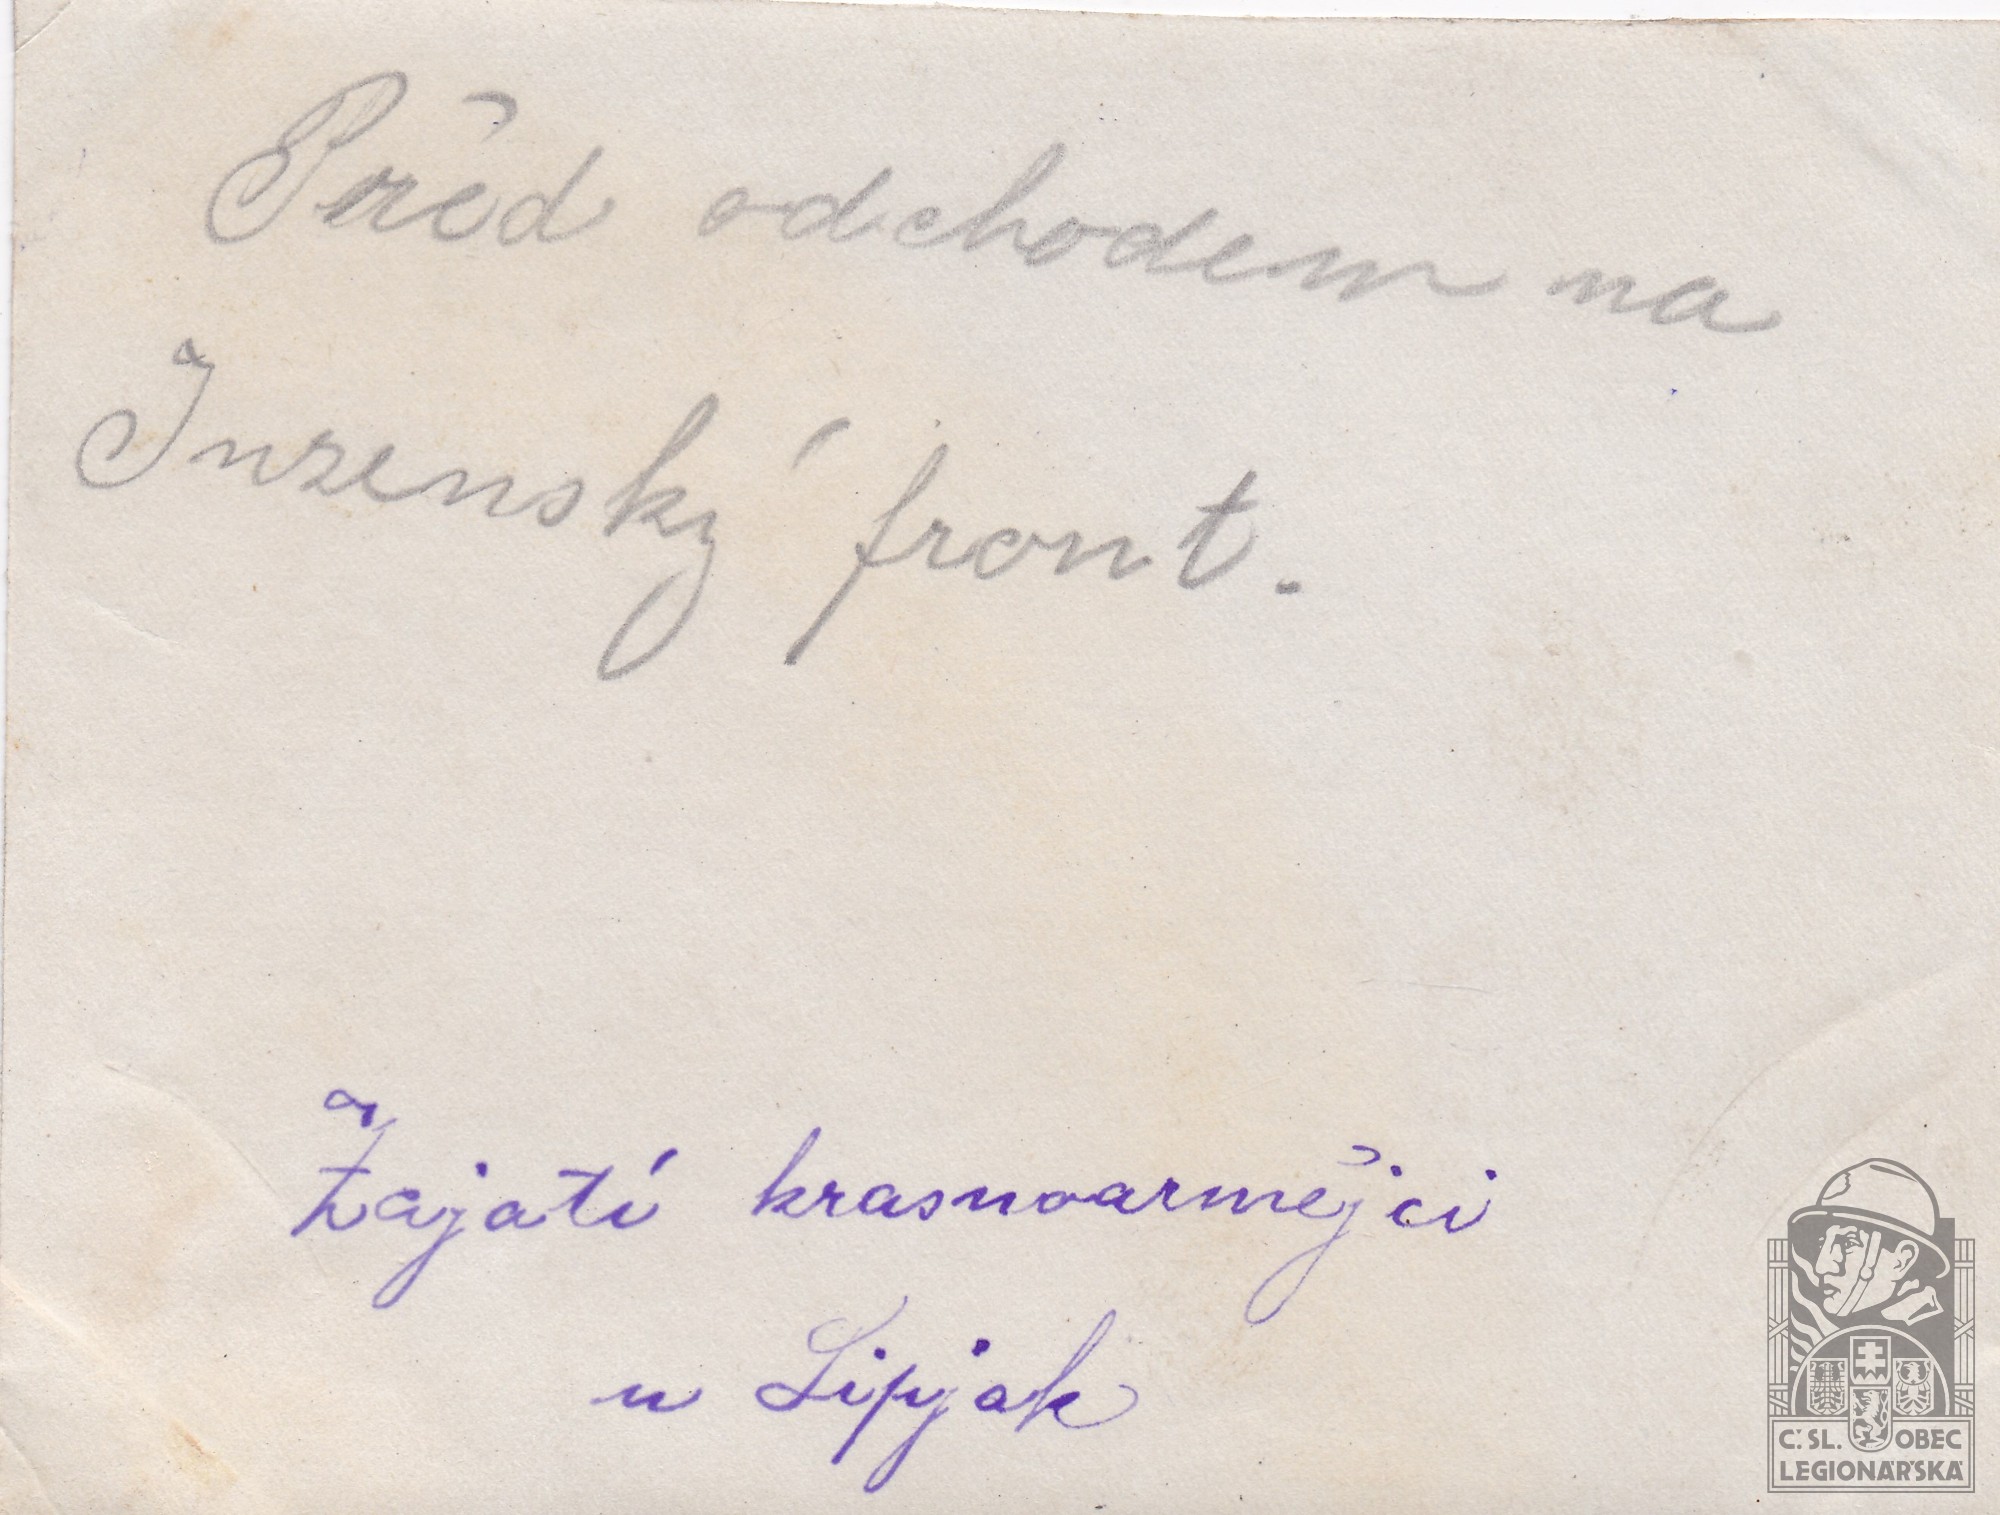 Před odchodem na
Inzenský front.
Zajatí krasnoarmějci
u Lipjak
Č. SL. OBEC
LEGIONÁŘSKÁ